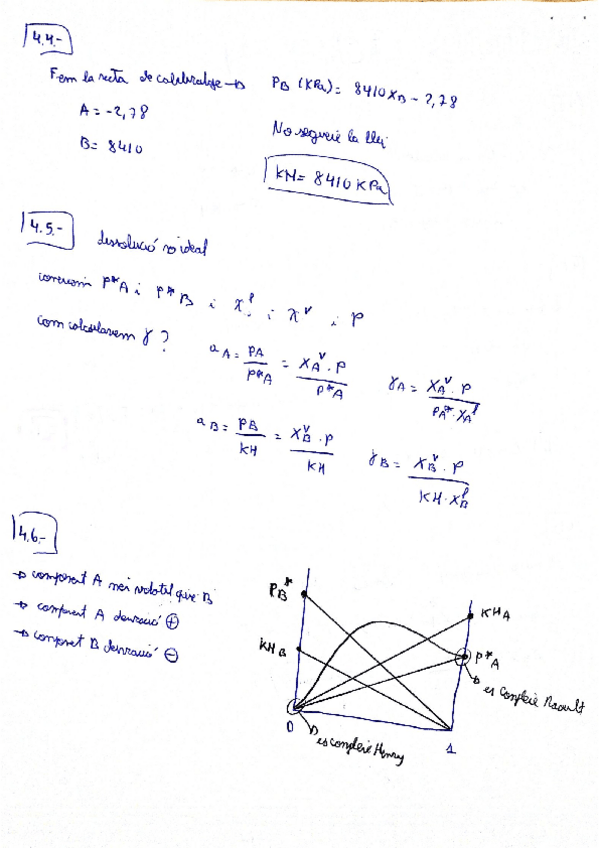 4.4.-
Fem la recta de calibratge → PB (KPa) = 8410 XB - 2,78
A = -2,78
B = 8410
No segueix la llei
KH = 8410 KPa
4.5.-
dissolució no ideal
coneixem P*A i P*B i X^l i X^v i P
com calcularem γ?
aA = PA / P*A = XA^v · P / P*A
γA = XA^v · P / PA* · XA^l
aB = PB / KH = XB^v · P / KH
γB = XB^v · P / KH · XB^l
4.6.-
→ component A més volatil que B
→ component A desviació ⊕
→ component B desviació ⊖
PB*
KHB
KHA
P*A
→ es compleix Raoult
0
→ es compleix Henry
1